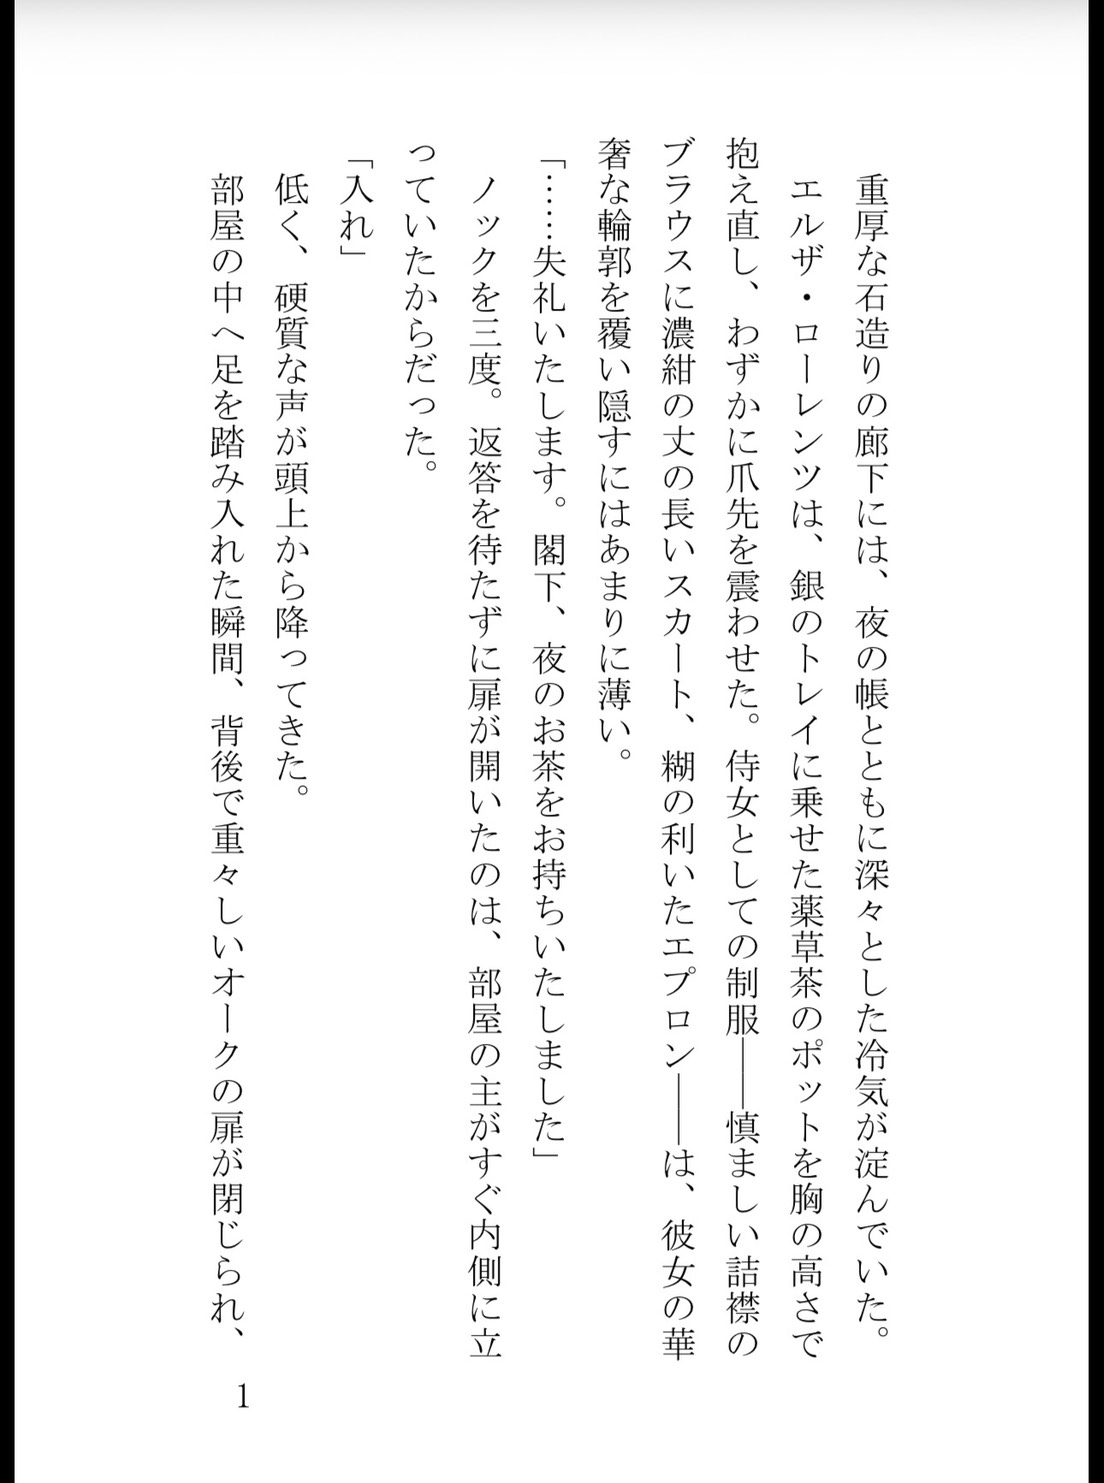 重厚な石造りの廊下には、夜の帳とともに深々とした冷気が淀んでいた。
エルザ・ローレンツは、銀のトレイに乗せた薬草茶のポットを胸の高さで
抱え直し、わずかに爪先を震わせた。侍女としての制服――慎ましい詰襟の
ブラウスに濃紺の丈の長いスカート、糊の利いたエプロン――は、彼女の華
奢な輪郭を覆い隠すにはあまりに薄い。
「……失礼いたします。閣下、夜のお茶をお持ちいたしました」
ノックを三度。返答を待たずに扉が開いたのは、部屋の主がすぐ内側に立
っていたからだった。
「入れ」
低く、硬質な声が頭上から降ってきた。
部屋の中へ足を踏み入れた瞬間、背後で重々しいオークの扉が閉じられ、
1